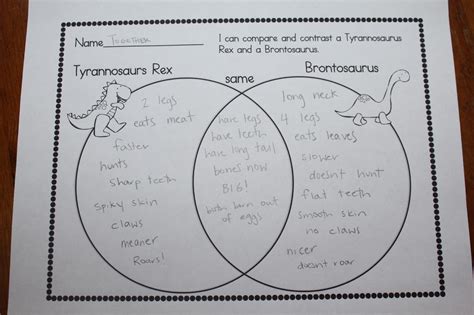 Name Together
I can compare and contrast a Tyrannosaurus
Rex and a Brontosaurus.
Tyrannosaurs Rex
same
Brontosaurus
2 legs
eats meat
faster
hunts
sharp teeth
spiky skin
claws
meaner
Roars!
have legs
have teeth
have long tail
bones now
BIG!
both born out
of eggs
long neck
4 legs
eats leaves
slower
doesnt hunt
flat teeth
smooth skin
no claws
nicer
doesnt roar